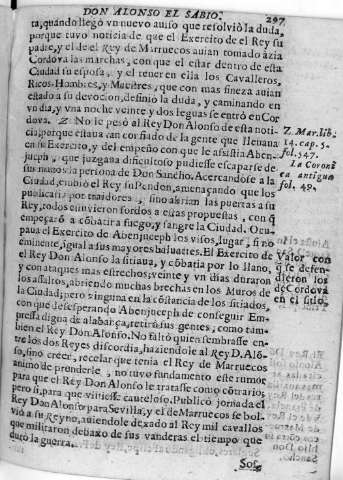 DON ALONSO EL SABIO.
297
ta, quando llegò vn nueuo auiso que resolviò la duda,
porque tuvo noticia de que el Exercito de el Rey su
padre, y el de el Rey de Marruecos auian tomado àzia
Cordova las marchas, con que el estar dentro de esta
Ciudad su esposa, y el tener en ella los Cavalleros,
Ricos-Hombres, y Maestres, que con mas fineza auian
estado à su devocion, definiò la duda, y caminando en
vn dia, y vna noche veinte y dos leguas se entrò en Cor
dova. Z No le pesò al Rey Don Alonso de esta noti-
cia, porque estaua tan confiado de la gente que lleuaua
en su Exercito, y del empeño con que le assistia Aben-
juceph, que juzgaua dificultoso pudiesse escaparse de
sus manos la persona de Don Sancho. Acercandose à la
Ciudad, embiò el Rey su Pendon, amenaçando que los
publicaria por traidores, sino abrian las puertas à su
Rey, todos estuvieron sordos a estas propuestas, con q̃
empeçarõ à cõbatir a fuego, y sangre la Ciudad. Ocu-
paua el Exercito de Abenjuceph los visos, lugar, si no
eminente, igual a sus mayores baluartes. El Exercito de
el Rey Don Alonso la sitiaua, y cõbatia por lo llano,
y con ataques mas estrechos; veinte y vn dias duraron
los assaltos, abriendo muchas brechas en los Muros de
la Ciudad; pero ninguna en la cõstancia de los sitiados,
con que desesperando Abenjuceph de conseguir Em-
pressa digna de alabãça, retirò sus gentes, como tam-
bien el Rey Don Alonso. No faltò quien sembrasse en-
tre los dos Reyes discordia, haziendole al Rey D. Alõ-
so, sino creer, recelar que tenia el Rey de Marruecos
animo de prenderle, no tuvo fundamento este rumor
para que el Rey Don Alonso le tratasse como cõtrario;
pero si, para que viviesse cauteloso. Publicò jornada el
Rey Don Alonso para Sevilla, y el de Marruecos se bol-
viò a su Reyno, auiendole dexado al Rey mil cavallos
que militaron debaxo de sus vanderas el tiempo que
durò la guerra.
Z. Mar. lib.
14. cap. 5.
fol. 547.
La Coroni
ca antigua
fol. 49.
Valor con
q̃ se defen-
dieron los
de Cordova
en el sitio.